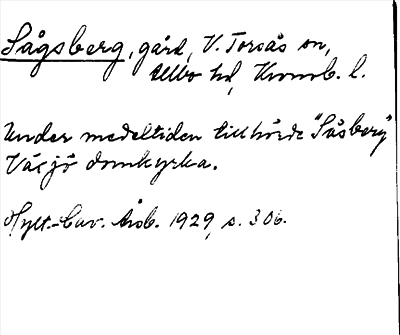 Sågsberg, gård, V. Torsås sn,
Allbo hd, Kronob. l.
Under medeltiden tillhörde "Såsberg"
Växjö domkyrka.
Hylt.-Cav. Årsb. 1929, s. 306.